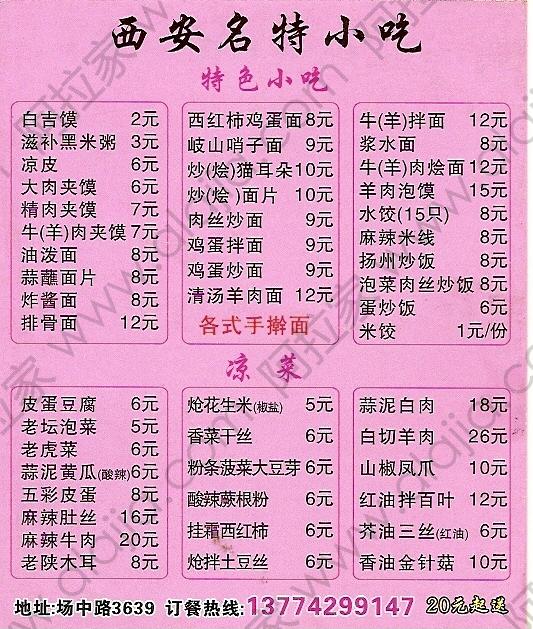 西安名特小吃
特色小吃
白吉馍 2元
滋补黑米粥 3元
凉皮 6元
大肉夹馍 6元
精肉夹馍 7元
牛(羊)肉夹馍 7元
油泼面 8元
蒜蘸面片 8元
炸酱面 8元
排骨面 12元
西红柿鸡蛋面 8元
岐山哨子面 9元
炒(烩)猫耳朵 10元
炒(烩)面片 10元
肉丝炒面 9元
鸡蛋拌面 9元
鸡蛋炒面 9元
清汤羊肉面 12元
各式手擀面
牛(羊)拌面 12元
浆水面 8元
牛(羊)肉烩面 12元
羊肉泡馍 15元
水饺(15只) 8元
麻辣米线 8元
扬州炒饭 8元
泡菜肉丝炒饭 8元
蛋炒饭 6元
米饭 1元/份
凉菜
皮蛋豆腐 6元
老坛泡菜 5元
老虎菜 6元
蒜泥黄瓜(酸辣) 6元
五彩皮蛋 8元
麻辣肚丝 16元
麻辣牛肉 20元
老陕木耳 8元
炝花生米(椒盐) 5元
香菜干丝 6元
粉条菠菜大豆芽 6元
酸辣蕨根粉 6元
挂霜西红柿 6元
炝拌土豆丝 6元
蒜泥白肉 18元
白切羊肉 26元
山椒凤爪 10元
红油拌百叶 12元
芥油三丝(红油) 6元
香油金针菇 10元
地址:场中路3639 订餐热线:13774299147 20元起送
阿拉家 www.alajia.com